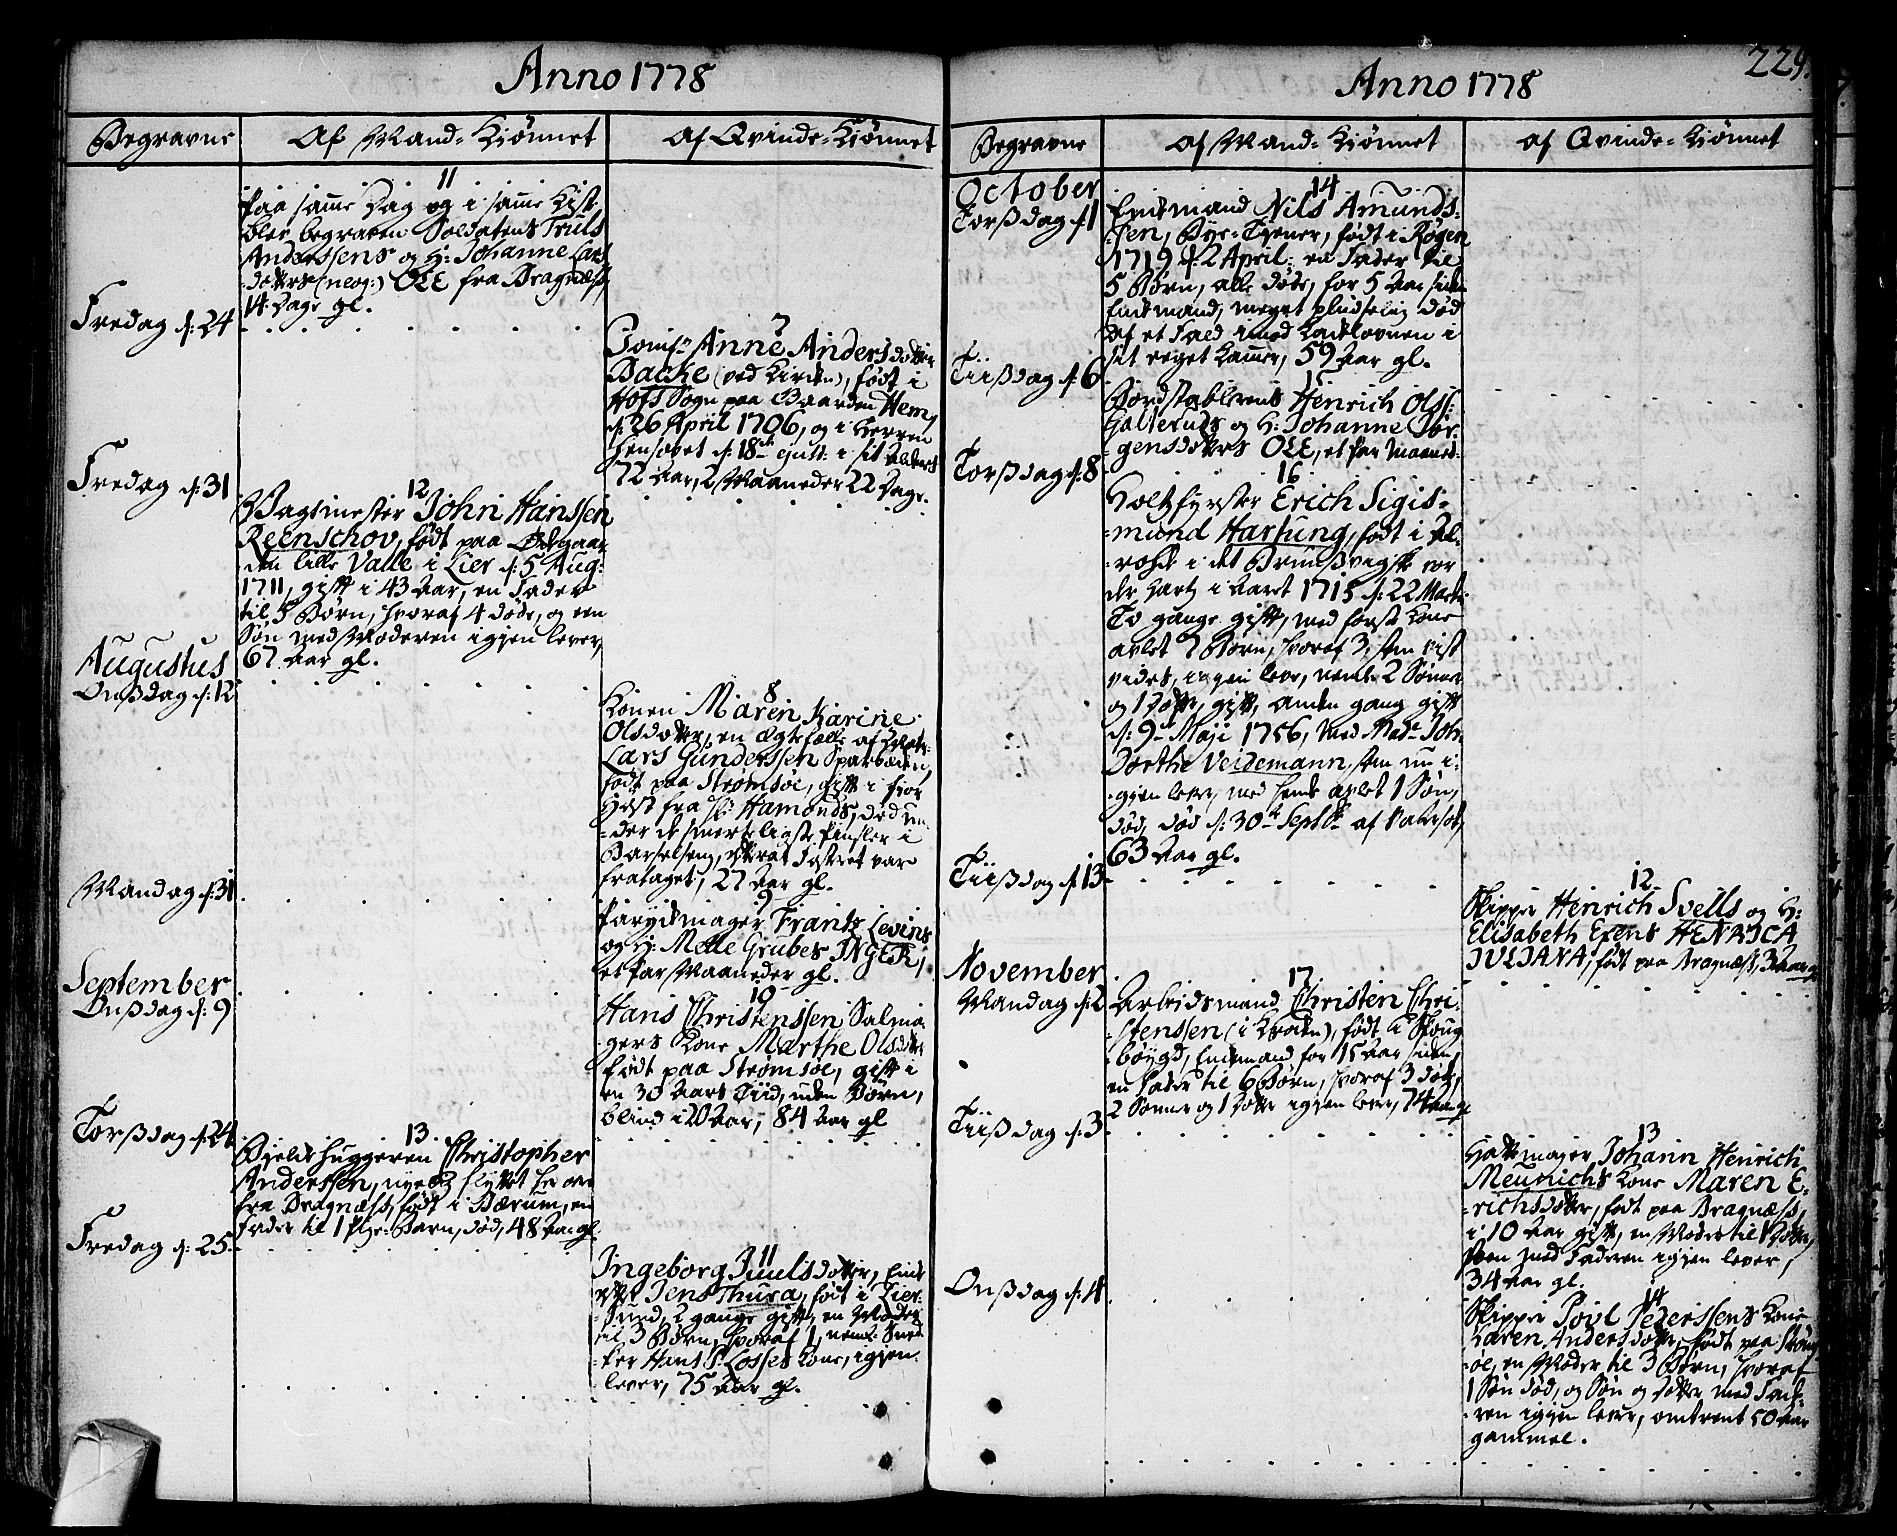 Anno 1778
Begravne
Af Mand-Kiønnet
Af Qvinde-Kiønnet
11
Paa samme Dag og i samme Kiste
blev begraven Soldatens Truls
Anderssens og H: Johanne Lars
dotters (neog:) OLE fra Bragnæss,
14 Dage gl.
Fredag d: 24
7
Jomfr Anne Andersdotter
Backe (ved Kirken), født i
Hofs Sogn paa Gaarden Hem,
d: 26 April 1706, og i Herren
hensovet d: 18de ejusd: i sit Alders
72 Aar, 2 Maaneder 22 Dage.
Fredag d: 31
12
Vagtmester John Hanssen
Reenschov, født paa
den lille Valle i Lier d: 5 Aug:
1711, gift i 43 Aar, en Fader
til 5 Børn, hvoraf 4 døde, og een
Søn med Moderen igjen lever,
67 Aar gl.
Augustus
Onssdag d: 12
8
Konen Maren Karine
Olsdotter, en Ægtefælle af
Lars Gunderssen Sparbøen,
født paa Strømsøe, gift i fior
Høst fra Hr Hamonds, død un-
-der de smerteligste Pinsler i
Barselseng, efterat Fostret var
frataget, 27 Aar gl.
Mandag d: 31
9
Parykmager Frantz Levins
og H: Mette Grubes INGER,
et Par Maaneder gl.
September
Onssdag d: 9
10
Hans Christenssen Salma-
-gers Kone Marthe Olsdotter
født paa Strømsøe, gift i
en 30 Aars Tiid, uden Børn,
blind i 20 Aar, 84 Aar gl
Torssdag d: 24
13.
Bjelkehuggeren Christopher
Anderssen, nyelig flyttet her over
fra Bragnæss, født i Bærum, en
Fader til 1 Barn, død, 48 Aar gl.
Fredag d: 25.
11
Ingeborg Juulsdotter, Enke
efter Jens Thura, født i Lier-
-sund, 2 gange gift, en Moder
til 3 Børn, hvoraf 1, neml: Sned-
-ker Hans P. Losses Kone, igjen
lever, 75 Aar gl.
229.
Anno 1778
Begravne
af Mand-Kiønnet
af Qvinde-Kiønnet
October
Torssdag d: 1
14
Enkemand Nils Amunds-
-sen, Bye-Tjener, født i Røgen
1719 d: 2 April: en Fader til
5 Børn, alle døde, for 5 Aar siden
Enkemand, meget pludselig død
af et Fald imod Kakelovnen i
sit eeget Kammer, 59 Aar gl.
Tiissdag d: 6
15
Bordstablerens Henrich Ols:
Galteruds og H: Johanne Jør-
gensdotters OLE, et par Maaned:
Torssdag d: 8
16
Holtzfyrster Erich Sigis-
-mund Hartung, født i Al-
-rohde i det Brunssvigske ved
der Hartz i Aaret 1715 d: 22 Marti
To gange gift, med første Kone
avlet 7 Børn, hvoraf 3, som vist
vides, igjen leve, neml: 2 Sønner
og 1 Dotter, gift, anden gang gift
d: 9de Maji 1756, med Made Joh:
Dorthe Veidemann, som nu i-
-gien lever, med hende avlet 1 Søn,
død, død d: 30te Septbr af Vatersot,
63 Aar gl.
Tiissdag d: 13
12
Skipper Henrich Svells og H:
Elisabeth Exens HENRICA
JULIANA, født paa Bragnæss, 3 Aar gl
November
Mandag d: 2
17
Arbeidsmand Christen Chri-
-stenssen (i Kroken), født i Skoug-
-bøygd, Enkemand for 15 Aar siden,
en Fader til 6 Børn, hvoraf 3 døde,
2 Sønner og 1 Dotter igjen lever, 74 Aar gl
Tiissdag d: 3
13
Hattemager Johann Henrich
Meurichs Kone Maren E-
-richsdotter, født paa Bragnæss,
i 10 Aar gift, en Moder til 1 Dotter,
som med Faderen igjen lever,
34 Aar gl.
Onssdag d: 4
14
Skipper Povl Pederssens Kone
Karen Andersdotter, født paa Strøms-
-øe, en Moder til 3 Børn, hvoraf
1 Søn død, og Søn og Dotter med Fade-
-ren igjen lever, omtrent 50 Aar
gammel.